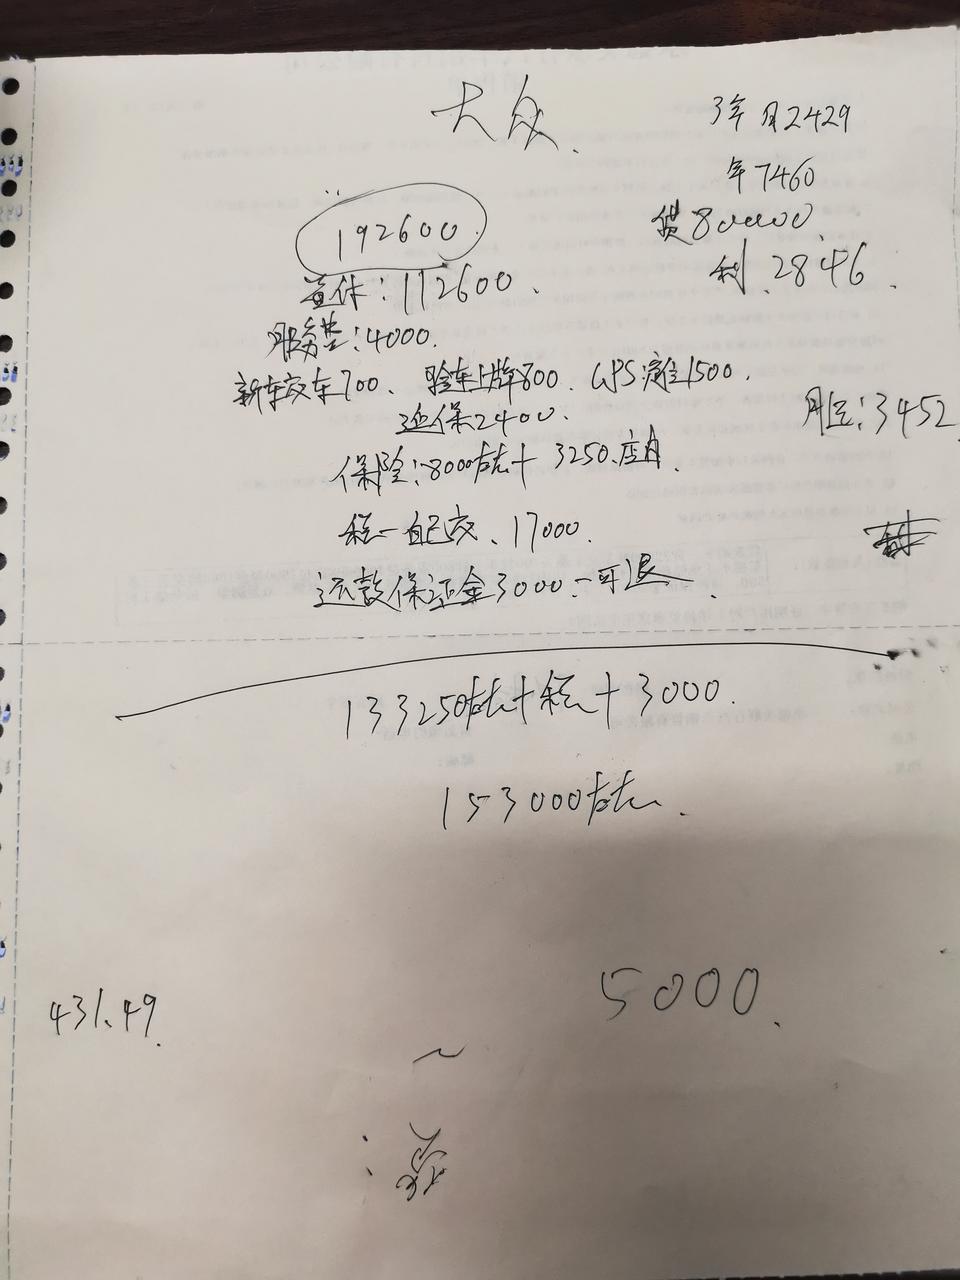 大众.
3年 月2429
年7460
贷80000
利.2846.
192600.
首付:112600.
服务费:4000.
新车交车700、验车上牌800.GPS 1500.
延保2400.
月还:3452
保险:8000左右+3250.店内.
税一自己交、17000.
还款保证金3000.一可退.
133250左右+税+3000.
153000左右.
5000.
431.49.